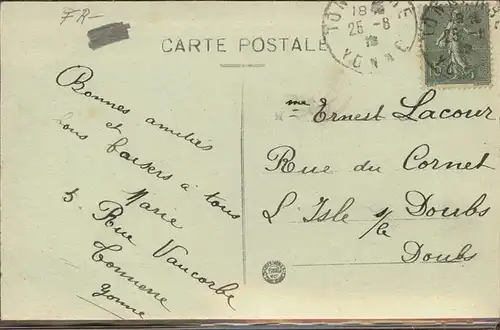 FR-
CARTE POSTALE
TONNERRE
18
25-8
YONNE
Bonnes amitiés
et
bons baisers à tous
Marie
5. Rue Vaucorbe
Tonnerre
Yonne
Mme Ernest Lacour
Rue du Cornet
L'Isle s/le Doubs
Doubs